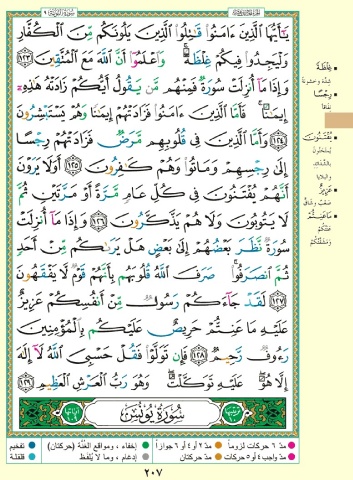 سورة التوبة ٩
يَٰٓأَيُّهَا ٱلَّذِينَ ءَامَنُوا۟ قَٰتِلُوا۟ ٱلَّذِينَ يَلُونَكُم مِّنَ ٱلْكُفَّارِ
وَلْيَجِدُوا۟ فِيكُمْ غِلْظَةً ۚ وَٱعْلَمُوٓا۟ أَنَّ ٱللَّهَ مَعَ ٱلْمُتَّقِينَ ١٢٣
وَإِذَا مَآ أُنزِلَتْ سُورَةٌ فَمِنْهُم مَّن يَقُولُ أَيُّكُمْ زَادَتْهُ هَٰذِهِۦٓ
إِيمَٰنًا ۚ فَأَمَّا ٱلَّذِينَ ءَامَنُوا۟ فَزَادَتْهُمْ إِيمَٰنًا وَهُمْ يَسْتَبْشِرُونَ
١٢٤ وَأَمَّا ٱلَّذِينَ فِى قُلُوبِهِم مَّرَضٌ فَزَادَتْهُمْ رِجْسًا
إِلَىٰ رِجْسِهِمْ وَمَاتُوا۟ وَهُمْ كَٰفِرُونَ ١٢٥ أَوَلَا يَرَوْنَ
أَنَّهُمْ يُفْتَنُونَ فِى كُلِّ عَامٍ مَّرَّةً أَوْ مَرَّتَيْنِ ثُمَّ
لَا يَتُوبُونَ وَلَا هُمْ يَذَّكَّرُونَ ١٢٦ وَإِذَا مَآ أُنزِلَتْ
سُورَةٌ نَّظَرَ بَعْضُهُمْ إِلَىٰ بَعْضٍ هَلْ يَرَىٰكُم مِّنْ أَحَدٍ
ثُمَّ ٱنصَرَفُوا۟ ۚ صَرَفَ ٱللَّهُ قُلُوبَهُم بِأَنَّهُمْ قَوْمٌ لَّا يَفْقَهُونَ
١٢٧ لَقَدْ جَآءَكُمْ رَسُولٌ مِّنْ أَنفُسِكُمْ عَزِيزٌ
عَلَيْهِ مَا عَنِتُّمْ حَرِيصٌ عَلَيْكُم بِٱلْمُؤْمِنِينَ
رَءُوفٌ رَّحِيمٌ ١٢٨ فَإِن تَوَلَّوْا۟ فَقُلْ حَسْبِىَ ٱللَّهُ لَآ إِلَٰهَ
إِلَّا هُوَ ۖ عَلَيْهِ تَوَكَّلْتُ ۖ وَهُوَ رَبُّ ٱلْعَرْشِ ٱلْعَظِيمِ ١٢٩
سُورَةُ يُونُسَ
غِلْظَةً
شدّة وخشونة
رِجْسًا
نفاقا
يُفْتَنُونَ
يُمتحنون
بالشدائد
والبلايا
عَزِيزٌ
صعب وشاق
مَا عَنِتُّمْ
عنتكم
ومشقتكم
مدّ ٦ حركات لزوماً
مدّ ٢ أو ٤ أو ٦ جوازاً
إخفاء ، ومواقع الغنّة (حركتان)
تفخيم
مدّ واجب ٤ أو ٥ حركات
مدّ حركتان
إدغام ، وما لا يُلفظ
قلقلة
٢٠٧